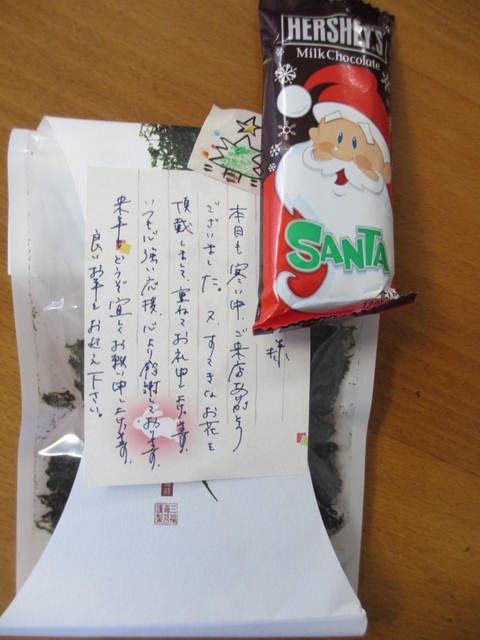 HERSHEY'S
Milk Chocolate
SANTA
様
本日も寒い中、ご来店ありがとう
ございました。又、すてきなお花を
頂戴しまして、重ねてお礼申し上げます。
いつも心強い応援、心より感謝しております。
来年もどうぞ宜しくお願い申し上げます。
良いお年をお迎え下さい。